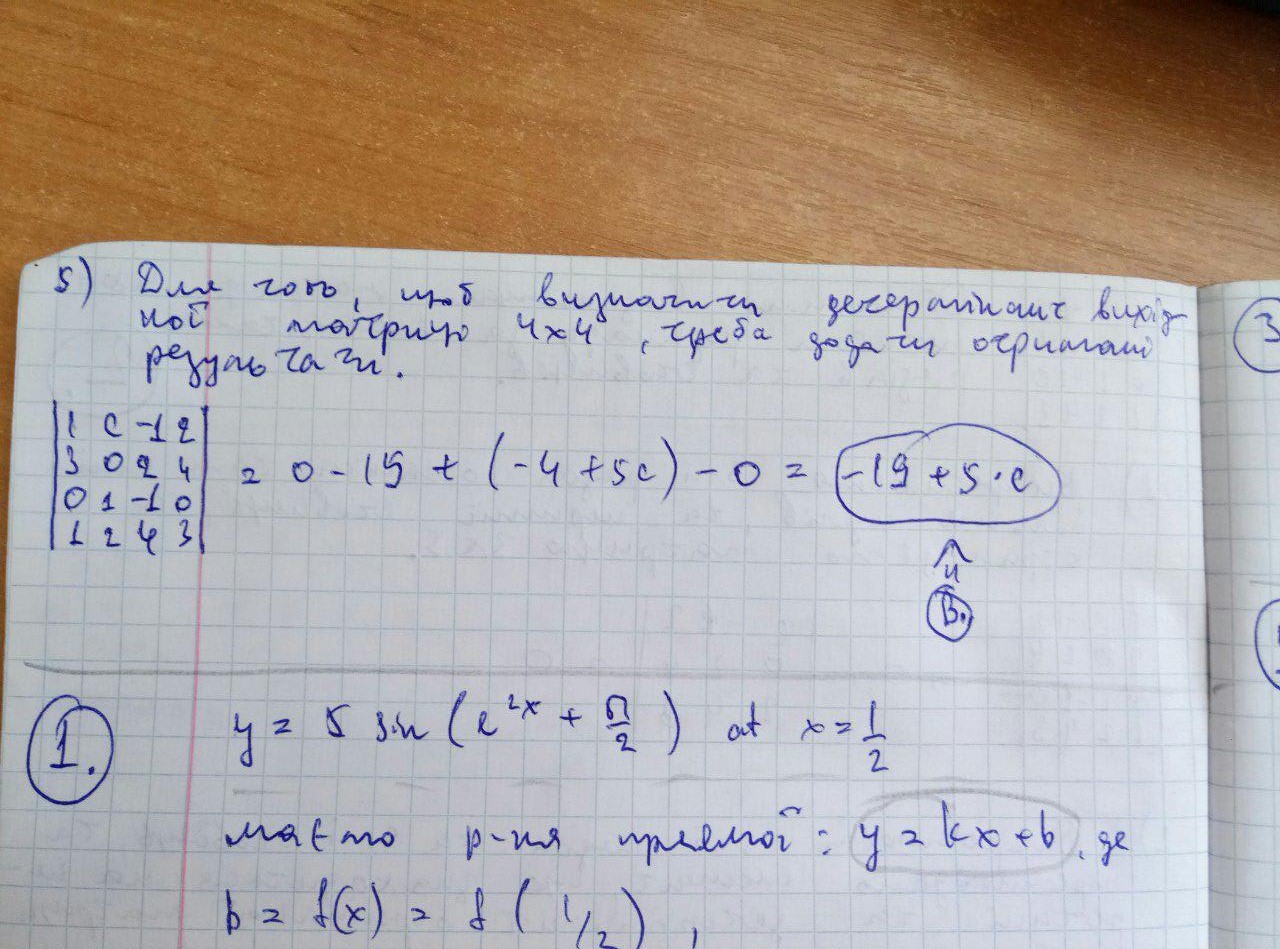 5) Для того, щоб визначити детермінант вихід-
ної матрицю 4x4, треба додати отримані
результати.
|1 c -1 2|
|3 0 2 4| = 0 - 15 + (-4 + 5c) - 0 = -19 + 5·c
|0 1 -1 0|
|1 2 4 3|
В.
1. y = 5 sin(e^2x + π/2) at x = 1/2
маємо р-ня прямої: y = kx + b, де
b = f(x) = f(1/2),
3